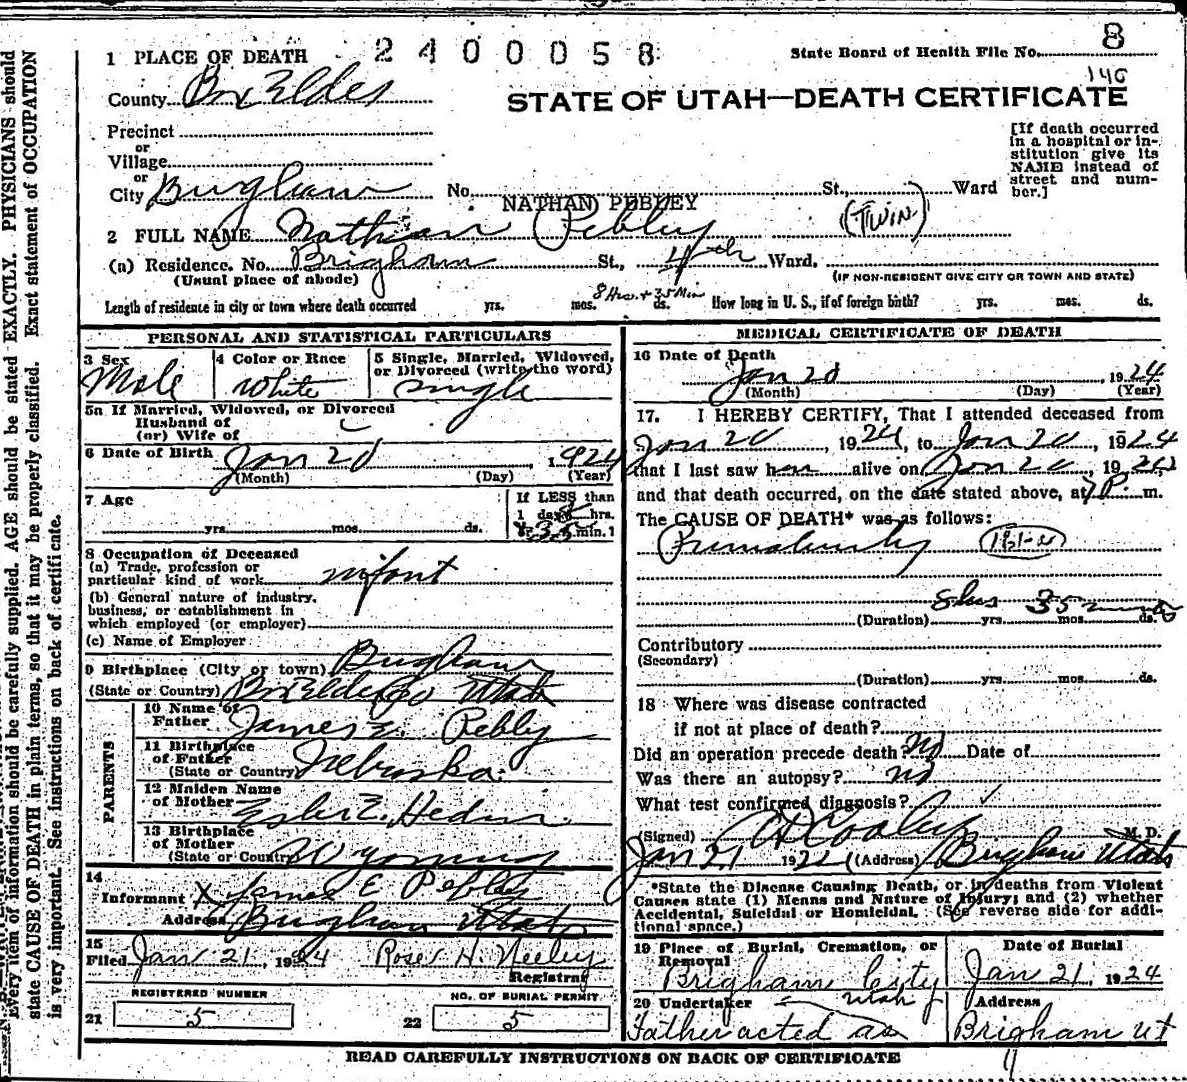 1 PLACE OF DEATH 2400058 State Board of Health File No. 8
County Box Elder 140
STATE OF UTAH—DEATH CERTIFICATE
Precinct
or
Village
or
City Brigham No. St., Ward
[If death occurred in a hospital or in-
stitution give its
NAME instead of
street and num-
ber.]
NATHAN PEBLEY
2 FULL NAME Nathan Pebley (TWIN)
(a) Residence. No. Brigham St., 4th Ward.
(Usual place of abode) (IF NON-RESIDENT GIVE CITY OR TOWN AND STATE)
Length of residence in city or town where death occurred yrs. mos. 8 Hrs. + 35 Min ds. How long in U. S., if of foreign birth? yrs. mos. ds.
PERSONAL AND STATISTICAL PARTICULARS
3 Sex 4 Color or Race 5 Single, Married, Widowed,
or Divorced (write the word)
Male White single
5a If Married, Widowed, or Divorced
Husband of
(or) Wife of
6 Date of Birth Jan 20, 1924
(Month) (Day) (Year)
7 Age If LESS than
1 day 8 hrs.
yrs. mos. ds. or 35 min.
8 Occupation of Deceased
(a) Trade, profession or
particular kind of work infant
(b) General nature of industry,
business, or establishment in
which employed (or employer)
(c) Name of Employer
9 Birthplace (City or town) Brigham
(State or Country) Box Elder Co Utah
PARENTS
10 Name of
Father James E. Pebley
11 Birthplace
of Father
(State or Country) Nebraska
12 Maiden Name
of Mother
13 Birthplace
of Mother
(State or Country) Wyoming
14
Informant X James E Pebley
Address Brigham Utah
15
Filed Jan 21, 1924 Rose H. Neeley
Registrar
REGISTERED NUMBER NO. OF BURIAL PERMIT
21 5 22 5
MEDICAL CERTIFICATE OF DEATH
16 Date of Death
Jan 20, 1924
(Month) (Day) (Year)
17. I HEREBY CERTIFY, That I attended deceased from
Jan 20, 1924, to Jan 20, 1924
that I last saw him alive on Jan 20, 192
and that death occurred, on the date stated above, at 7 P. m.
The CAUSE OF DEATH* was as follows:
Prematurity
8 hrs 35 minutes
(Duration) yrs. mos. ds.
Contributory
(Secondary)
(Duration) yrs. mos. ds.
18 Where was disease contracted
if not at place of death?
Did an operation precede death? no Date of
Was there an autopsy? no
What test confirmed diagnosis?
(Signed) M. D.
Jan 21 192 (Address) Brigham Utah
*State the Disease Causing Death, or in deaths from Violent
Causes state (1) Means and Nature of Injury; and (2) whether
Accidental, Suicidal or Homicidal. (See reverse side for addi-
tional space.)
19 Place of Burial, Cremation, or Date of Burial
Removal
Brigham City Jan 21 1924
Utah
20 Undertaker Address
Father acted as Brigham Ut
READ CAREFULLY INSTRUCTIONS ON BACK OF CERTIFICATE
Every item of information should be carefully supplied. AGE should be stated EXACTLY. PHYSICIANS should
state CAUSE OF DEATH in plain terms, so that it may be properly classified. Exact statement of OCCUPATION
is very important. See instructions on back of certificate.